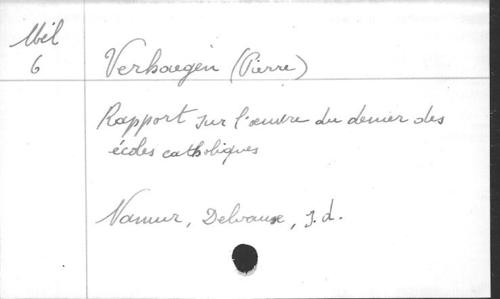 Mél
6
Verhaegen (Pierre)
Rapport sur l'œuvre du denier des
écoles catholiques
Namur, Delvaux, s.d.